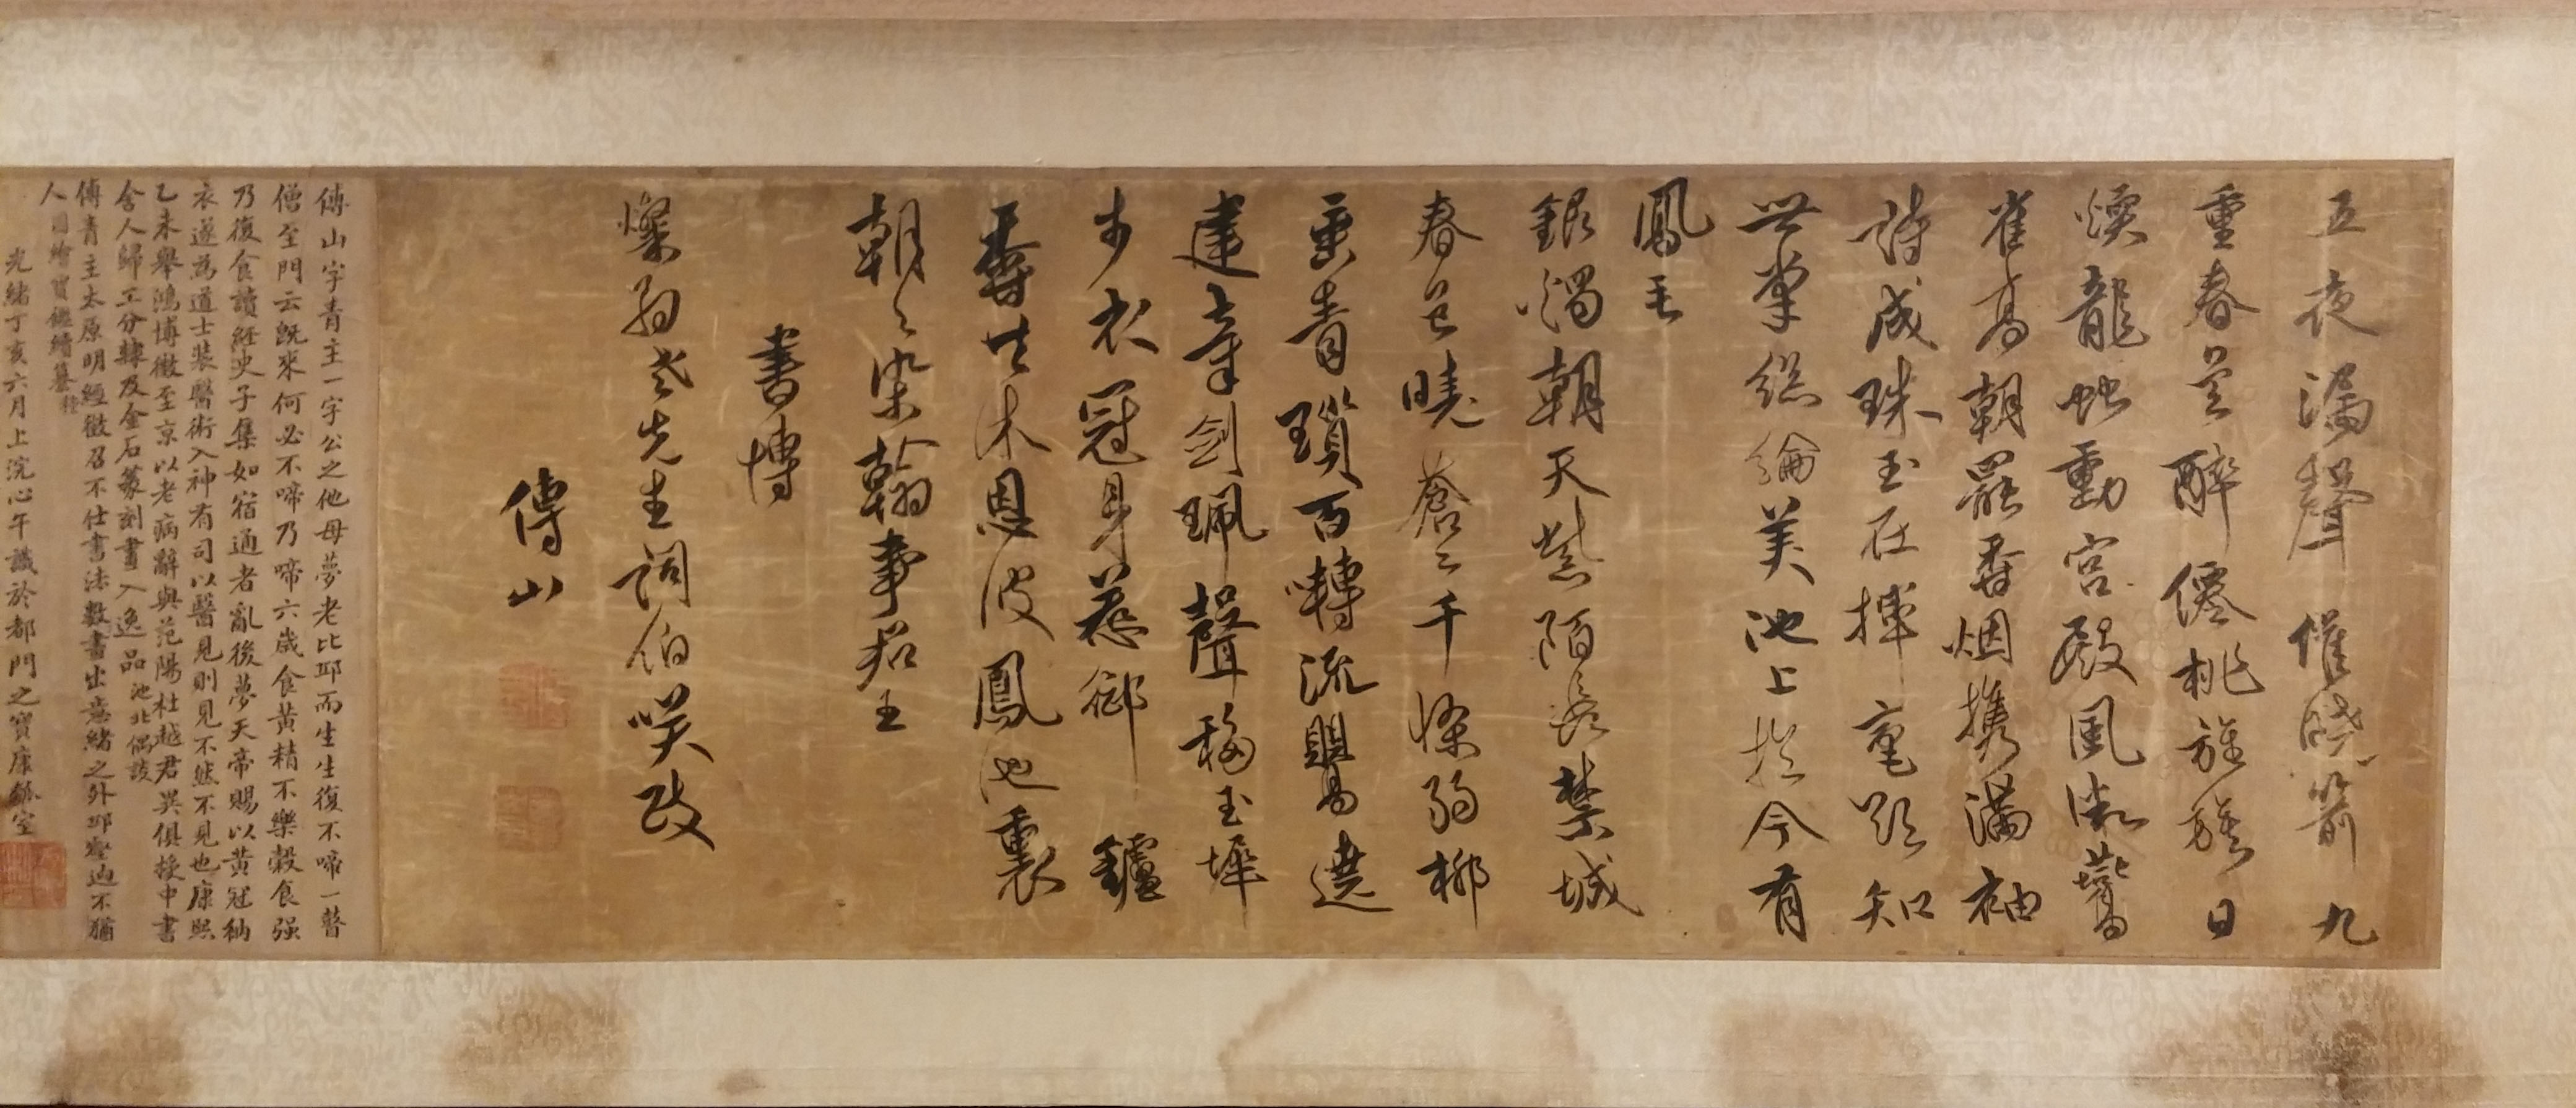 五夜漏聲催曉箭九
重春色醉僊桃旌旗日
煖龍蛇動宮殿風微鷰
雀高朝罷香烟携滿袖
詩成珠玉在揮毫欲知
世掌絲綸美池上於今有
鳳毛
銀燭朝天紫陌長禁城
春色曉蒼蒼千條弱柳
垂青瑣百囀流鶯遶
建章劍珮聲移玉墀
步衣冠身惹御鑪
香共沐恩波鳳池裏
朝朝染翰事君王
書博
燦翁老先生詞伯咲政
傅山
傅山字青主一字公之他母夢老比邱而生生復不啼一瞽
僧至門云既來何必不啼乃啼六歲食黃精不樂穀食强
乃復食讀經史子集如宿通者亂後夢天帝賜以黃冠衲
衣遂為道士裝醫術入神有司以醫見則見不然不見也康熙
乙未舉鴻博徵至京以老病辭與范陽杜越君異俱授中書
舍人歸工分隸及金石篆刻畫入逸品池北偶談
傅青主太原明經徵召不仕書法數書出意緒之外邱壑迥不猶
人圖繪寶鑑續纂
光緒丁亥六月上浣心午識於都門之寶康鉥室